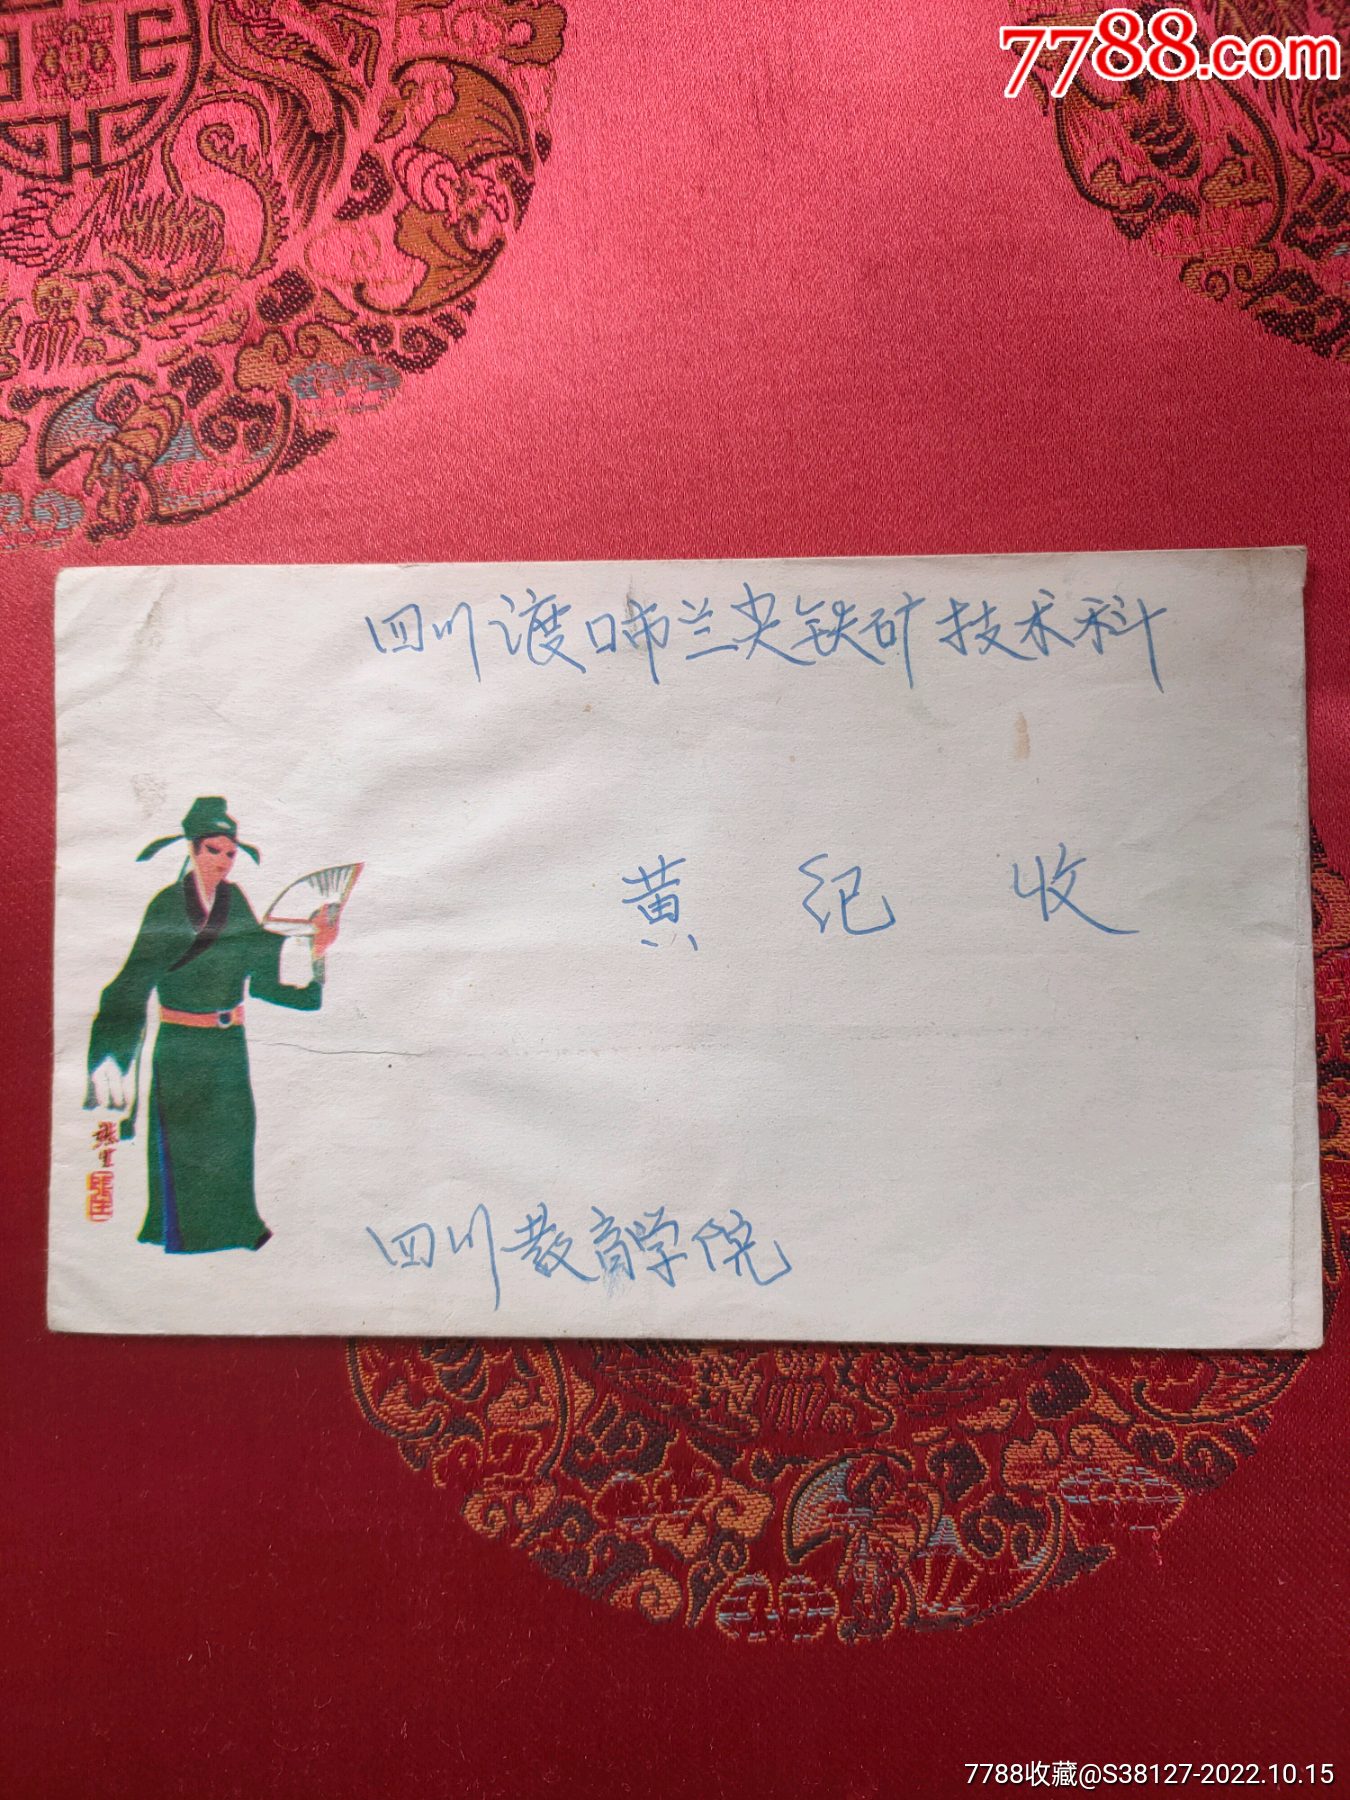 7788.com
四川渡口市兰尖铁矿技术科
黄纪收
张生
張生
四川教育学院
7788收藏@S38127-2022.10.15